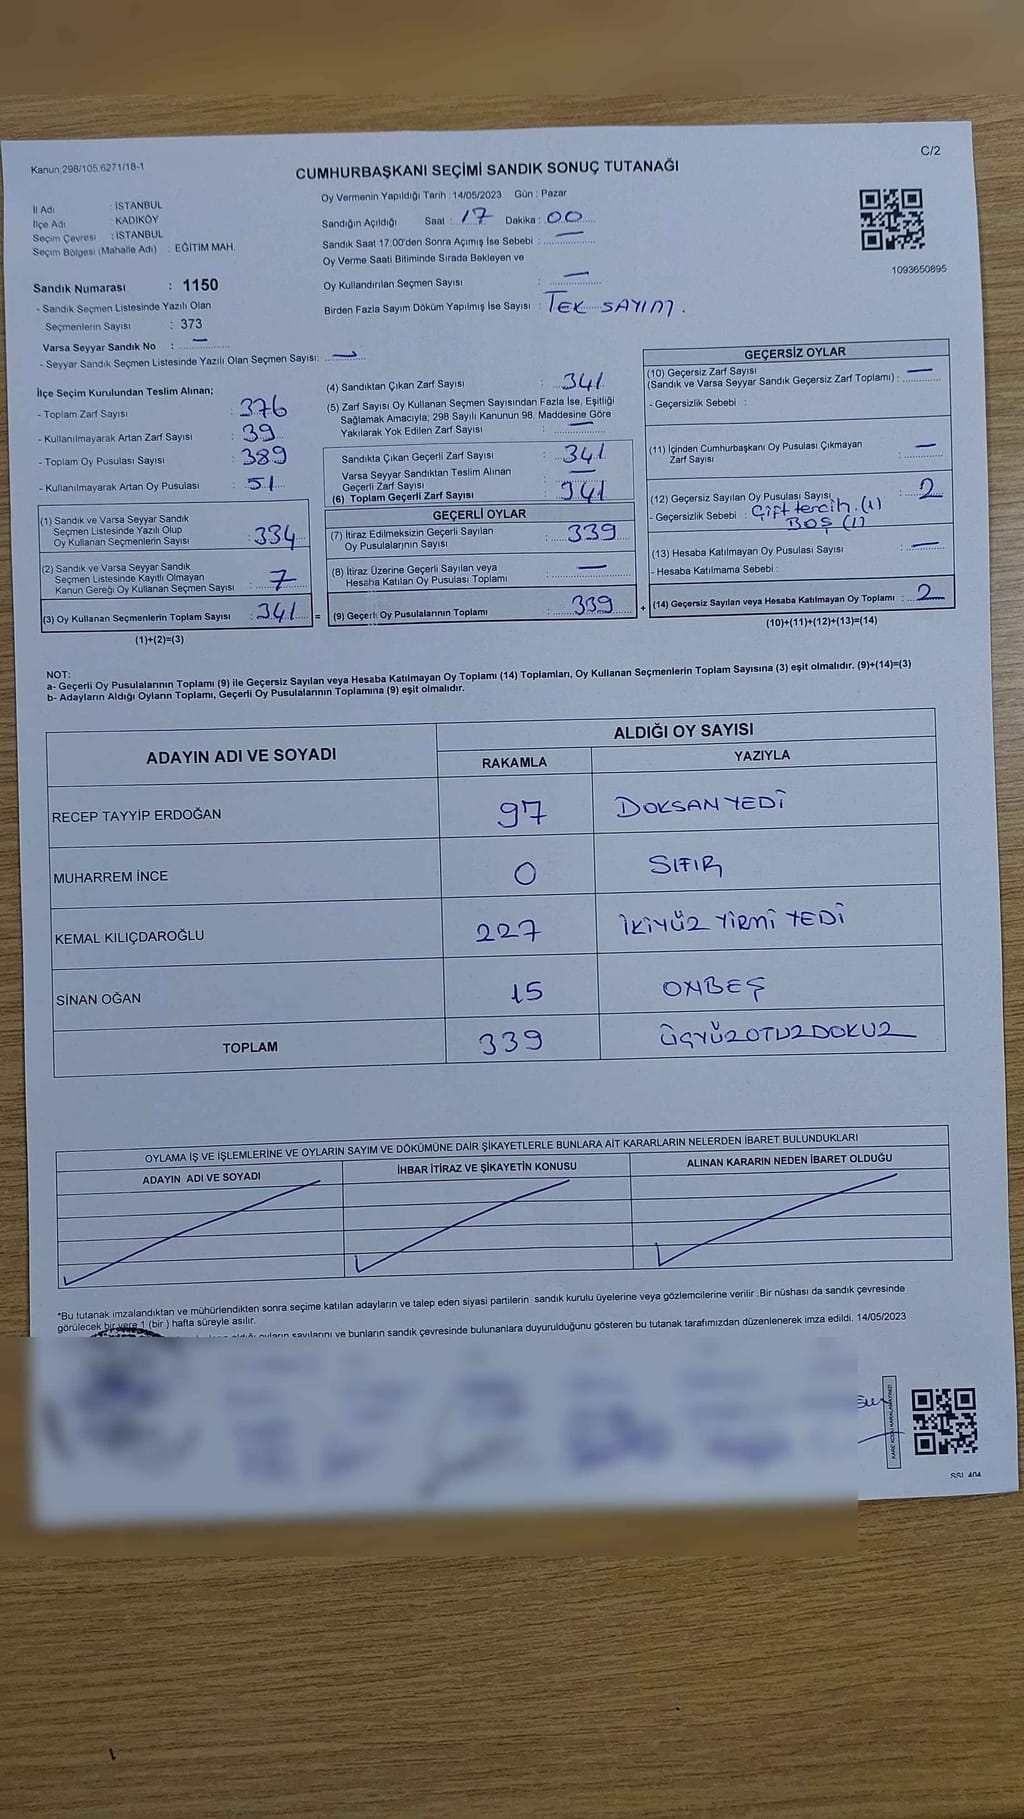 Kanun:298/105.6271/18-1
C/2
CUMHURBAŞKANI SEÇİMİ SANDIK SONUÇ TUTANAĞI
İl Adı : İSTANBUL
İlçe Adı : KADIKÖY
Seçim Çevresi : İSTANBUL
Seçim Bölgesi (Mahalle Adı) : EĞİTİM MAH.
Sandık Numarası : 1150
- Sandık Seçmen Listesinde Yazılı Olan
Seçmenlerin Sayısı : 373
Varsa Seyyar Sandık No : —
- Seyyar Sandık Seçmen Listesinde Yazılı Olan Seçmen Sayısı: —
Oy Vermenin Yapıldığı Tarih : 14/05/2023 Gün : Pazar
Sandığın Açıldığı Saat : 17 Dakika : 00
Sandık Saat 17:00'den Sonra Açımış İse Sebebi : —
Oy Verme Saati Bitiminde Sırada Bekleyen ve
Oy Kullandırılan Seçmen Sayısı : —
Birden Fazla Sayım Döküm Yapılmış İse Sayısı : TEK SAYIM.
1093650895
İlçe Seçim Kurulundan Teslim Alınan;
- Toplam Zarf Sayısı : 376
- Kullanılmayarak Artan Zarf Sayısı : 39
- Toplam Oy Pusulası Sayısı : 389
- Kullanılmayarak Artan Oy Pusulası : 51
(1) Sandık ve Varsa Seyyar Sandık
Seçmen Listesinde Yazılı Olup
Oy Kullanan Seçmenlerin Sayısı : 334
(2) Sandık ve Varsa Seyyar Sandık
Seçmen Listesinde Kayıtlı Olmayan
Kanun Gereği Oy Kullanan Seçmen Sayısı : 7
(3) Oy Kullanan Seçmenlerin Toplam Sayısı : 341 =
(1)+(2)=(3)
(4) Sandıktan Çıkan Zarf Sayısı : 341
(5) Zarf Sayısı Oy Kullanan Seçmen Sayısından Fazla İse, Eşitliği
Sağlamak Amacıyla; 298 Sayılı Kanunun 98. Maddesine Göre
Yakılarak Yok Edilen Zarf Sayısı : —
Sandıkta Çıkan Geçerli Zarf Sayısı : 341
Varsa Seyyar Sandıktan Teslim Alınan
Geçerli Zarf Sayısı : —
(6) Toplam Geçerli Zarf Sayısı : 341
GEÇERLİ OYLAR
(7) İtiraz Edilmeksizin Geçerli Sayılan
Oy Pusulalarının Sayısı : 339
(8) İtiraz Üzerine Geçerli Sayılan veya
Hesaba Katılan Oy Pusulası Toplamı : —
(9) Geçerli Oy Pusulalarının Toplamı : 339 +
GEÇERSİZ OYLAR
(10) Geçersiz Zarf Sayısı
(Sandık ve Varsa Seyyar Sandık Geçersiz Zarf Toplamı) : —
- Geçersizlik Sebebi :
(11) İçinden Cumhurbaşkanı Oy Pusulası Çıkmayan
Zarf Sayısı : —
(12) Geçersiz Sayılan Oy Pusulası Sayısı : 2
- Geçersizlik Sebebi : Çift tercih. (1)
BOŞ (1)
(13) Hesaba Katılmayan Oy Pusulası Sayısı : —
- Hesaba Katılmama Sebebi :
(14) Geçersiz Sayılan veya Hesaba Katılmayan Oy Toplamı : 2
(10)+(11)+(12)+(13)=(14)
NOT:
a- Geçerli Oy Pusulalarının Toplamı (9) ile Geçersiz Sayılan veya Hesaba Katılmayan Oy Toplamı (14) Toplamları, Oy Kullanan Seçmenlerin Toplam Sayısına (3) eşit olmalıdır. (9)+(14)=(3)
b- Adayların Aldığı Oyların Toplamı, Geçerli Oy Pusulalarının Toplamına (9) eşit olmalıdır.
ADAYIN ADI VE SOYADI
ALDIĞI OY SAYISI
RAKAMLA YAZIYLA
RECEP TAYYİP ERDOĞAN 97 DOKSAN YEDİ
MUHARREM İNCE 0 SIFIR
KEMAL KILIÇDAROĞLU 227 İKİYÜZ YİRMİ YEDİ
SİNAN OĞAN 15 ONBEŞ
TOPLAM 339 ÜÇYÜZOTUZDOKUZ
OYLAMA İŞ VE İŞLEMLERİNE VE OYLARIN SAYIM VE DÖKÜMÜNE DAİR ŞİKAYETLERLE BUNLARA AİT KARARLARIN NELERDEN İBARET BULUNDUKLARI
ADAYIN ADI VE SOYADI İHBAR İTİRAZ VE ŞİKAYETİN KONUSU ALINAN KARARIN NEDEN İBARET OLDUĞU
*Bu tutanak imzalandıktan ve mühürlendikten sonra seçime katılan adayların ve talep eden siyasi partilerin sandık kurulu üyelerine veya gözlemcilerine verilir .Bir nüshası da sandık çevresinde
görülecek bir yere 1 (bir ) hafta süreyle asılır.
oyların sayılarını ve bunların sandık çevresinde bulunanlara duyurulduğunu gösteren bu tutanak tarafımızdan düzenlenerek imza edildi. 14/05/2023
KARE KODU KARALAMAYINIZ!